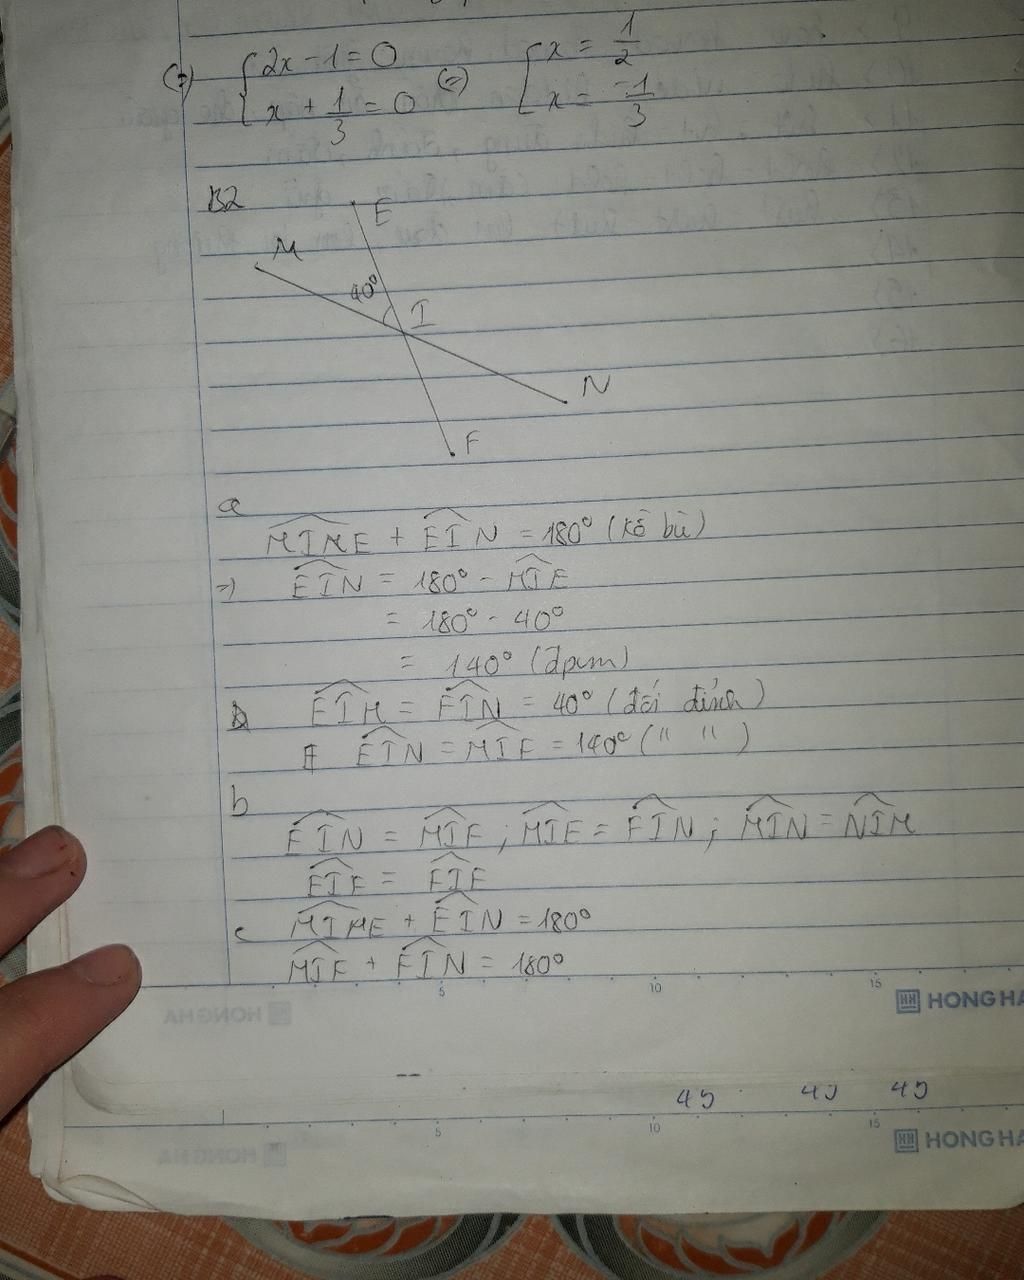 (=) { 2x - 1 = 0 (=) [ x = 1/2
x + 1/3 = 0 x = -1/3
B2
E
M
40°
I
N
F
a
MIME + EIN = 180° (kề bù)
=> EIN = 180° - MIE
= 180° - 40°
= 140° (đpcm)
EIM = FIN = 40° (đối đỉnh)
EIN = MIF = 140° (" ")
b
EIN = MIF ; MIE = FIN ; MIN = NIM
EIF = FIE
c MIME + EIN = 180°
MIF + FIN = 180°
5 10 15 HONG HA
45 45 45
5 10 15 HONG HA